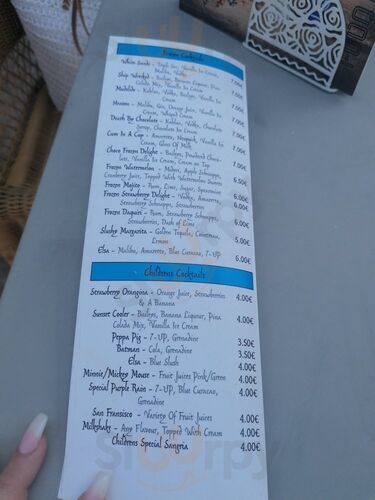 Frozen Cocktails
White Sands - Dark Rum, Vanilla Ice Cream,
Malibu, Vodka 7.00€
Ship Wrecked - Baileys, Banana Liqueur, Pina
Colada Mix, Vanilla Ice Cream 7.00€
Mudslide - Kahlua, Vodka, Baileys, Vanilla Ice
Cream 7.00€
Malibu, Gin, Orange Juice, Vanilla Ice
Cream, Whiped Cream 7.00€
Death By Chocolate - Kahlua, Vodka, Chocolate
Syrup, Chocolate Ice Cream 7.00€
Cum In A Cup - Amaretto, Nesquik, Vanilla Ice
Cream, Glass Of Milk 7.00€
Choco Frozen Delight - Baileys, Powdered Choco-
late, Vanilla Ice Cream, Cream on Top 7.00€
Frozen Watermelon - Midori, Apple Schnapps,
Cranberry Juice, Topped With Watermelon Sweets 6.50€
Frozen Mojito - Rum, Lime, Sugar, Spearmint 6.00€
Frozen Strawberry Delight - Vodka, Amaretto,
Strawberry Schnapps, Strawberries 6.50€
Frozen Daquiri - Rum, Strawberry Schnapps,
Strawberries, Dash of Lime 6.00€
Slushy Margarita - Golden Tequila, Cointreau,
Lemon 5.00€
Elsa - Malibu, Amaretto, Blue Curacao, 7-UP 6.00€
Childrens Cocktails
Strawberry Orangina - Orange Juice, Strawberries
& A Banana 4.00€
Sunset Cooler - Baileys, Banana Liqueur, Pina
Colada Mix, Vanilla Ice Cream 4.00€
Peppa Pig - 7-UP, Grenadine 3.50€
Batman - Cola, Grenadine 3.50€
Elsa - Blue Slush 4.00€
Minnie/Mickey Mouse - Fruit Juices Pink/Green 4.00€
Special Purple Rain - 7-UP, Blue Curacao,
Grenadine 4.00€
San Fransisco - Variety Of Fruit Juices 4.00€
Milkshake - Any Flavour, Topped With Cream 4.00€
Childrens Special Sangria 4.00€